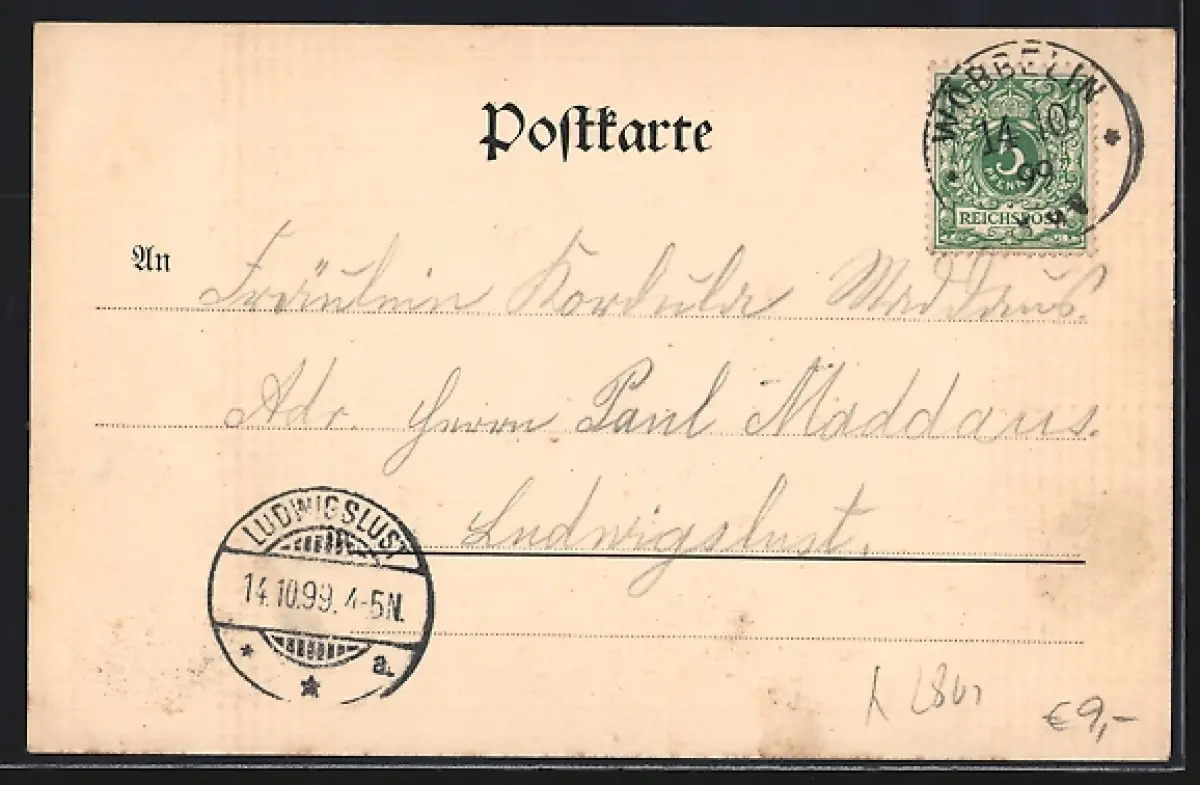 Postkarte
WÖBBELIN
14 10
99
5
PFENNIG
REICHSPOST
An Fräulein Kordula Maddaus.
Adr. Herrn Paul Maddaus.
Ludwigslust.
LUDWIGSLUST
14.10.99. 4-5N.
a.
€9,-